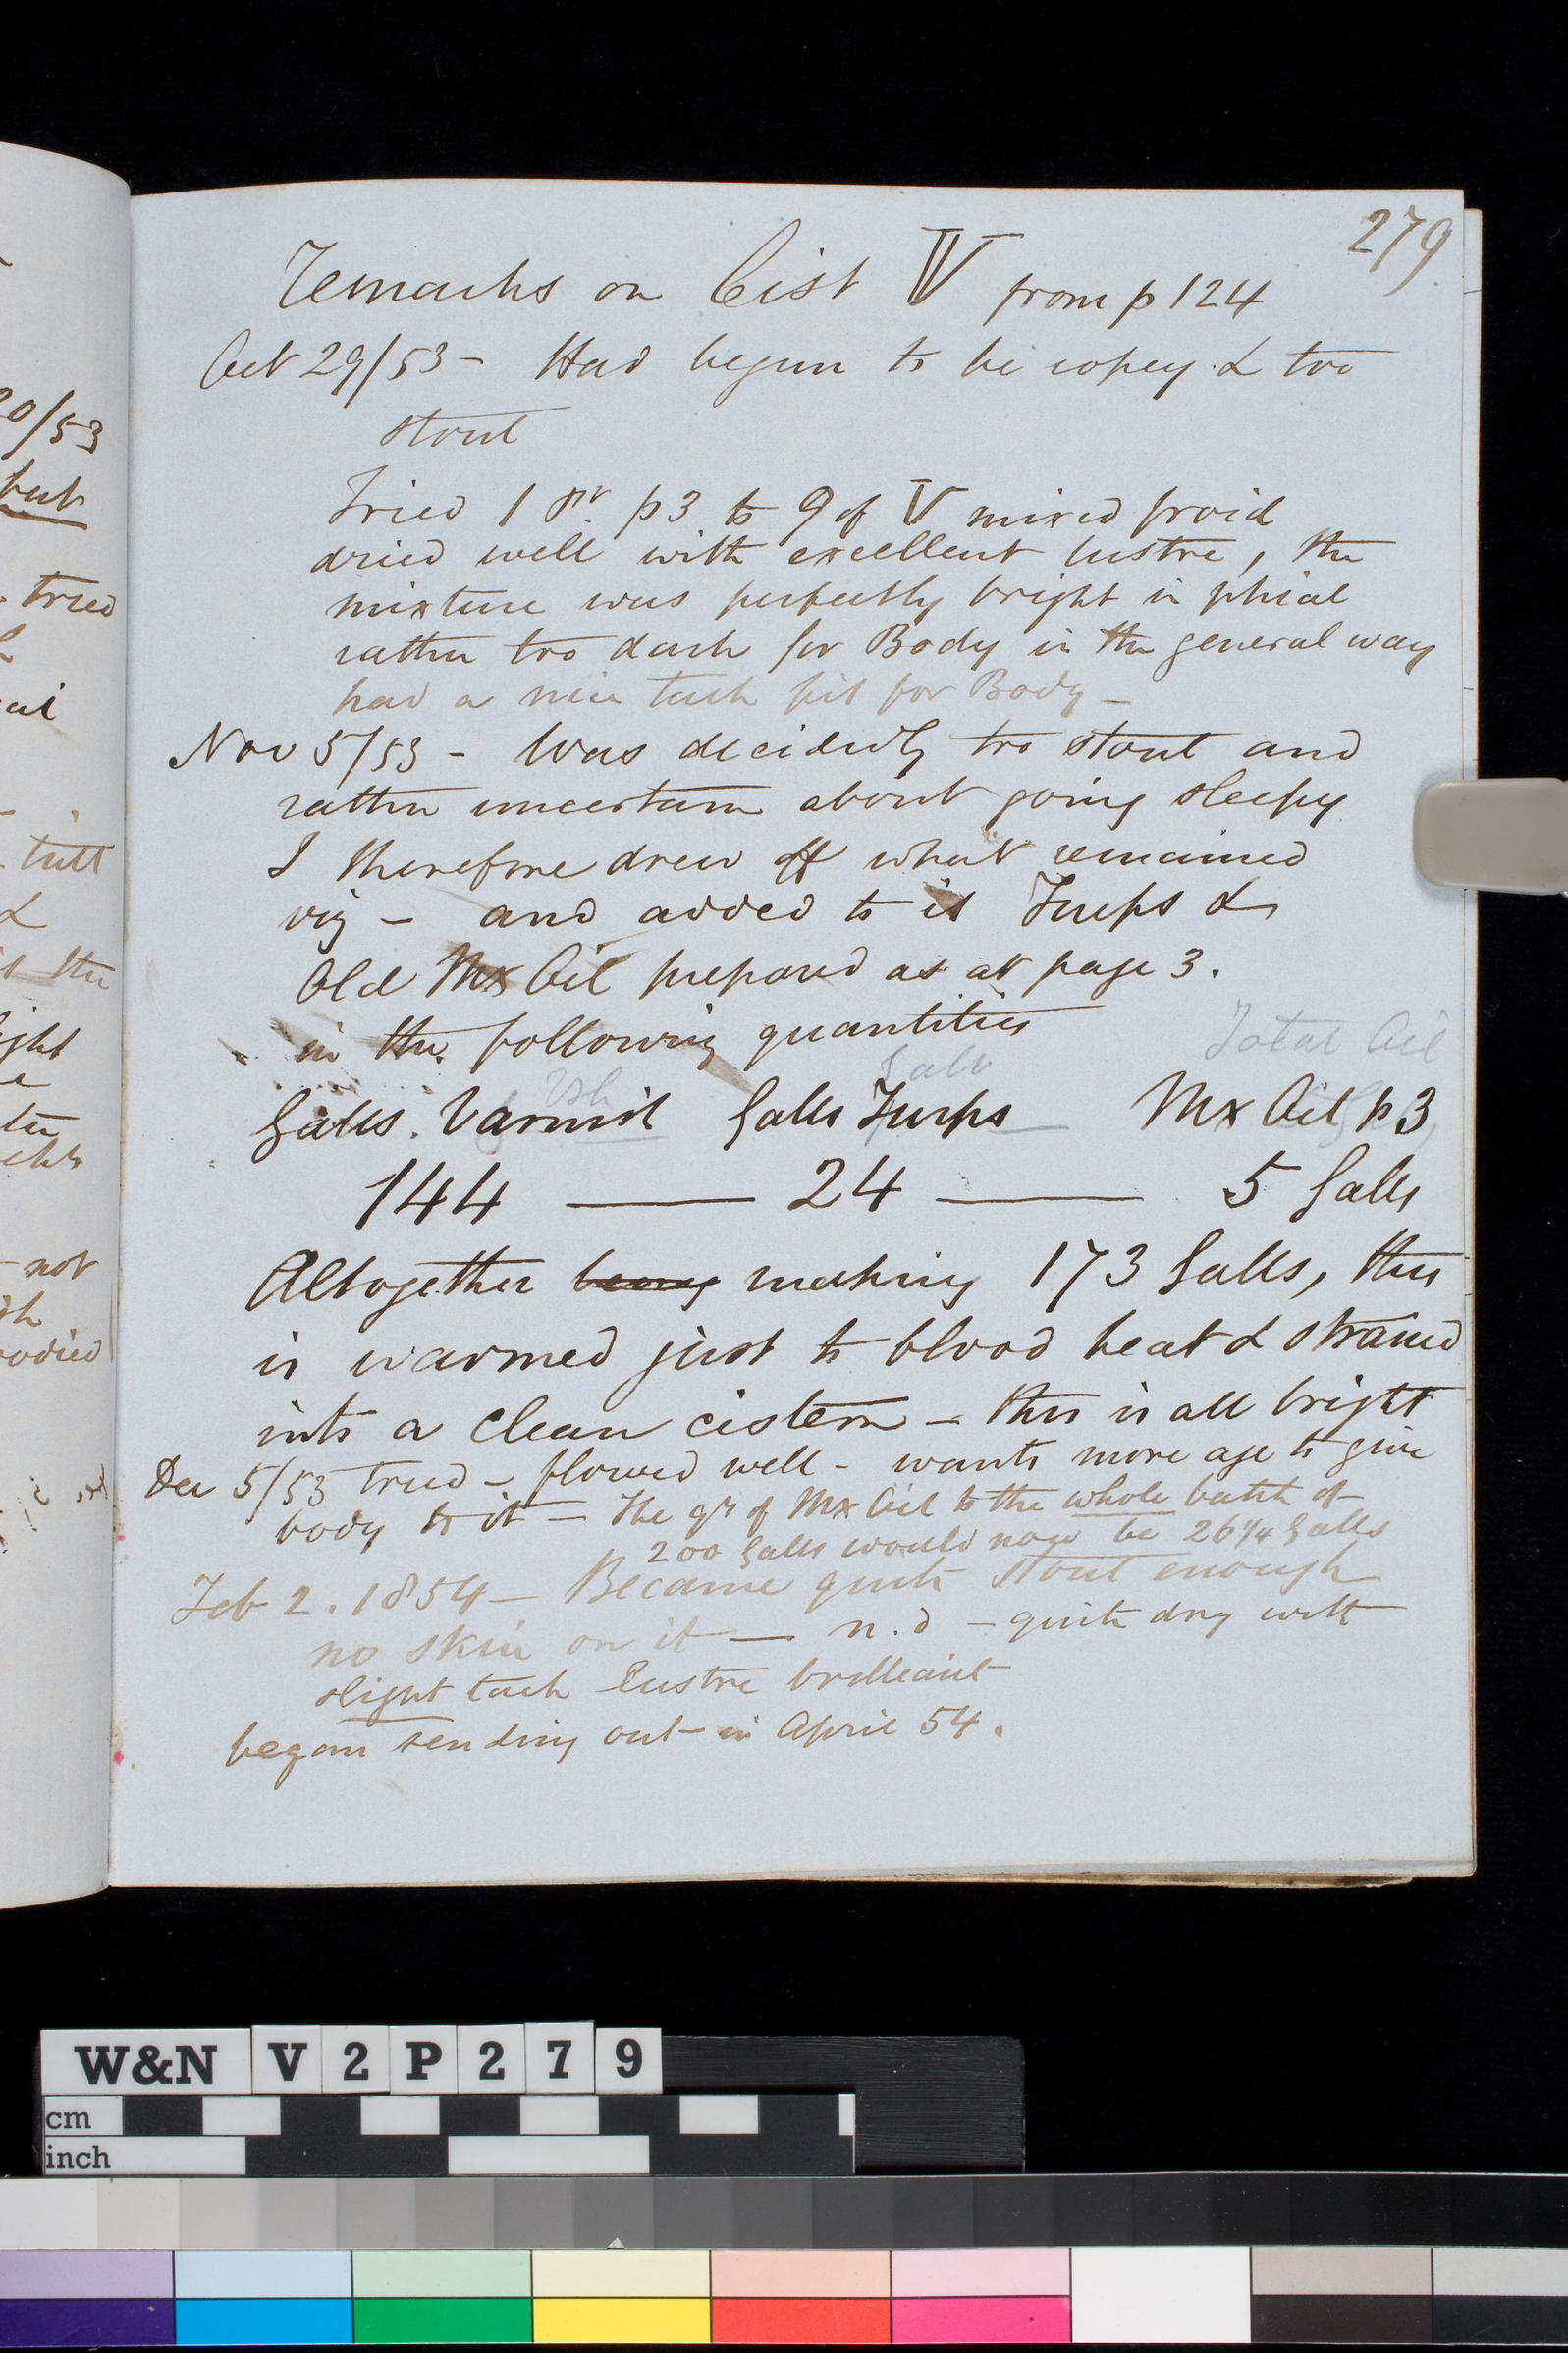 279
Remarks on Cist V from p 124
Oct 29/53 - Had begun to be ropey & too
stout
Tried 1 p3 to 9 of V mixed froid
dried well with excellent lustre, the
mixture was perfectly bright in phial
rather too dark for Body in the general way
had a nice tack fit for Body -
Nov 5/53 - Was decidedly too stout and
rather uncertain about going sleepy
I therefore drew off what remained
viz - and added to it Turps &
Old Mx Oil prepared as at page 3.
in the following quantities
Total Oil
Galls. Varnish Galls Turps Mx Oil p 3
144 — 24 — 5 Galls
Altogether being making 173 Galls, this
is warmed just to blood heat & strained
into a clean cistern - this is all bright
Dec 5/53 tried - flowed well - wants more age to give
body to it - The qy of Mx Oil to the whole batch of
200 Galls would now be 26 1/4 Galls
Feb 2. 1854 - Became quite stout enough
no skin on it — n.d - quite dry with
slight tack lustre brilliant
began sending out in April 54.
20/53
but
tried
not
bodied
W&N V 2 P 2 7 9
cm
inch